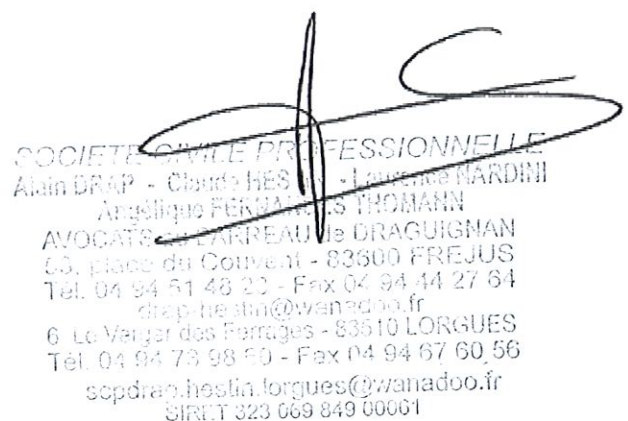 SOCIETE CIVILE PROFESSIONNELLE
Alain DRAP - Claude HES - Laurence NARDINI
Angélique THOMANN
AVOCATS BARREAU de DRAGUIGNAN
place du Couvent - 83600 FREJUS
Tél. 04 94 51 46 - Fax 04 94 44 27 64
drap-hestin@wanadoo.fr
6 Le Verger des Ferrages - 83510 LORGUES
Tél. 04 94 73 98 - Fax 04 94 67 60 56
scpdrap.hestin.lorgues@wanadoo.fr
SIRET 323 069 849 00061